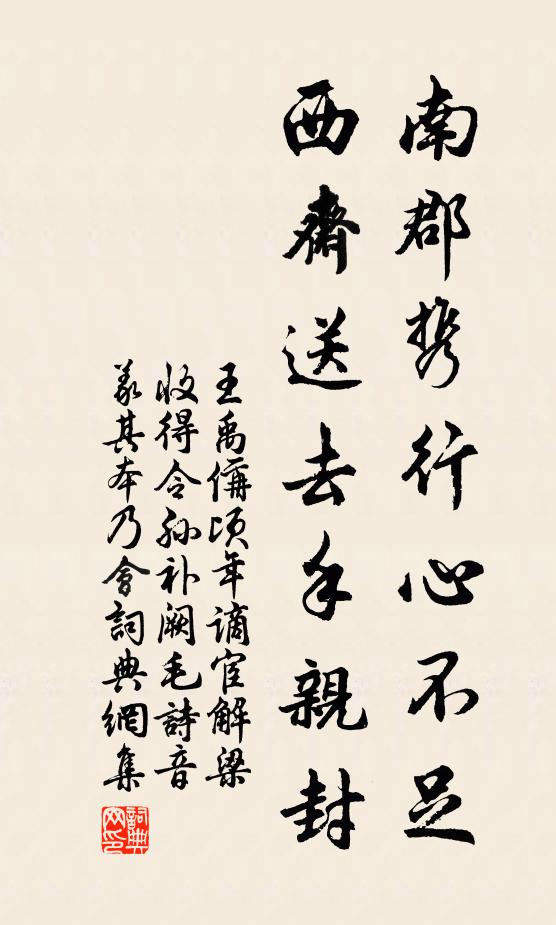 南郡携行心不足
西齋送去手親封
王禹偁頃年謫宦解梁
收得令孫补阙毛詩音
義其本乃會詞典網集
詞典網印